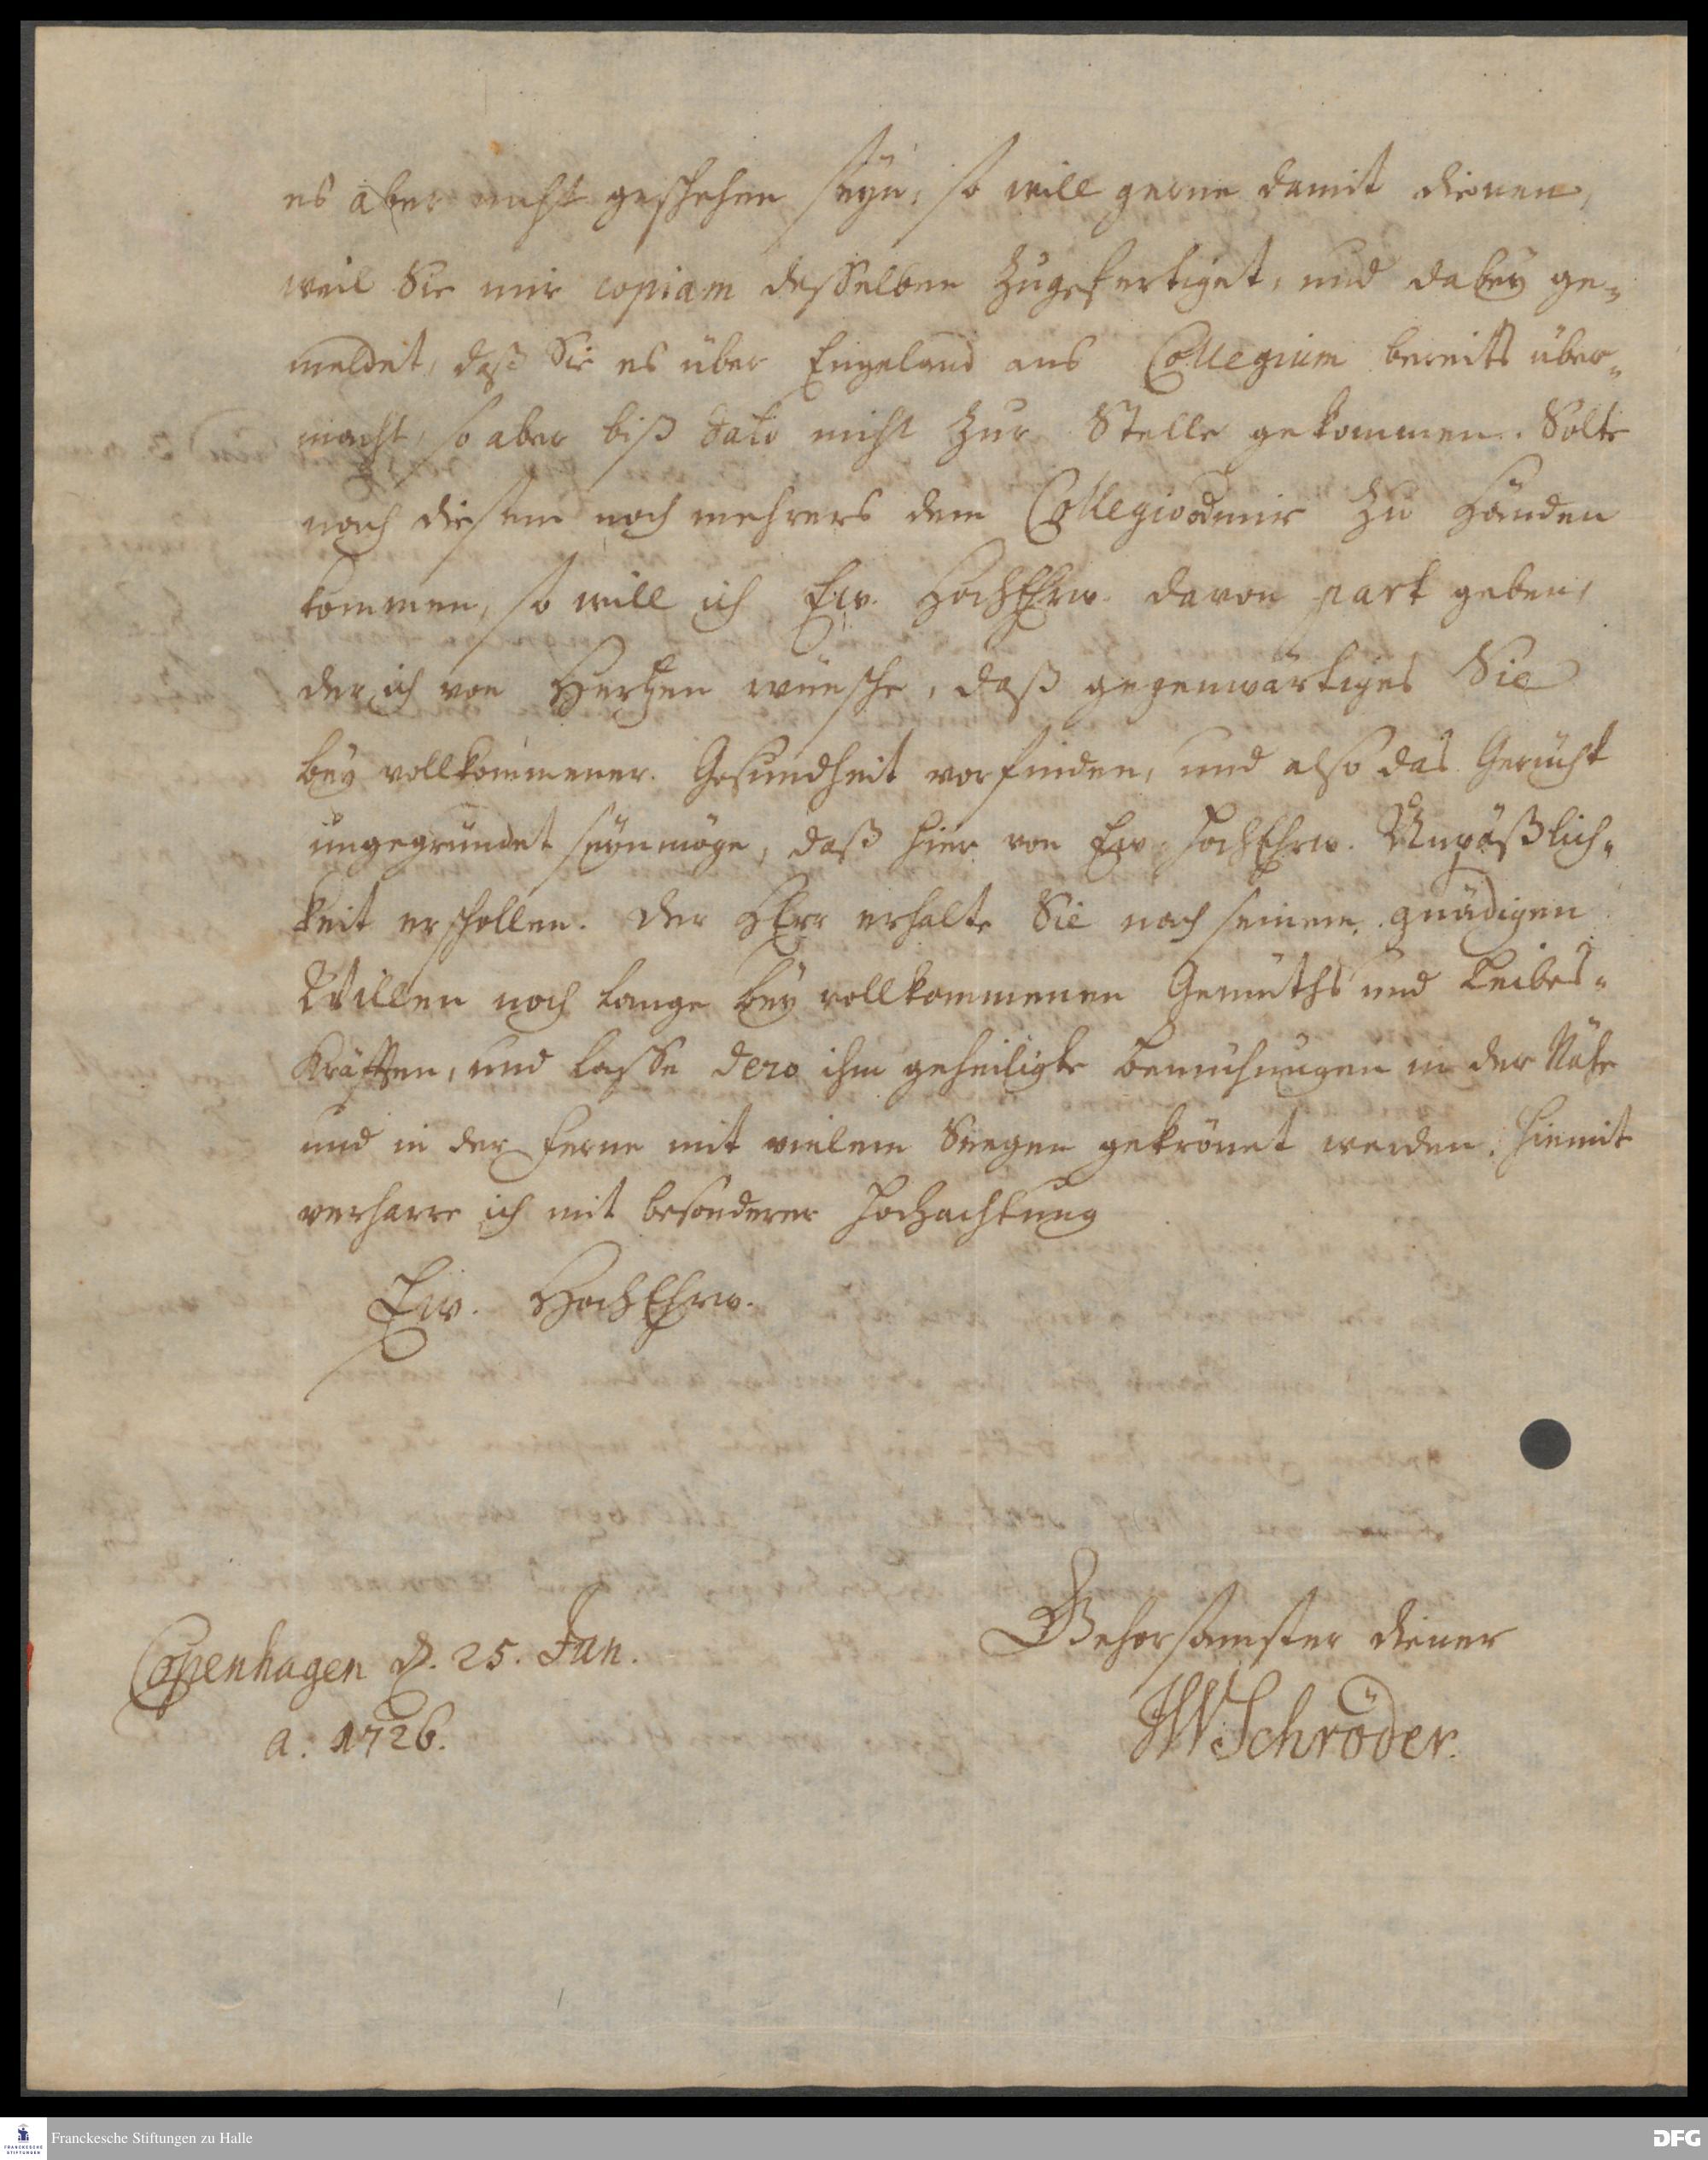 es aber nicht geschehen seyn, so will gerne damit dienen,
weil Sie mir copiam desselben zugefertiget, und dabey ge-
meldet, daß Sie es über Engeland ans Collegium bereits über-
macht, so aber biß dato nicht zur Stelle gekommen. Solte
nach diesem noch mehrers dem Collegio od mir zu Händen
kommen, so will ich Ew. HochEhrw. davon part geben,
der ich von Hertzen wünsche, daß gegenwärtiges Sie
bey vollkommener Gesundheit vorfinden, und also das Gerücht
ungegründet seyn möge, daß hier von Ew. HochEhrw. Unpäßlich-
keit erschollen. Der HErr erhalte Sie nach seinem gnädigen
Willen noch lange bey vollkommenen Gemüths und Leibes-
Kräfften, und lasse dero ihm geheiligte Bemühungen in der Nähe
und in der Ferne mit vielem Seegen gekrönet werden. Hiemit
verharre ich mit besonderer Hochachtung
Ew. HochEhrw.
Gehorsamster Diener
Copenhagen d. 25. Jan.
a. 1726.
JWSchröder.
Franckesche Stiftungen zu Halle
FRANCKESCHE
STIFTUNGEN
DFG